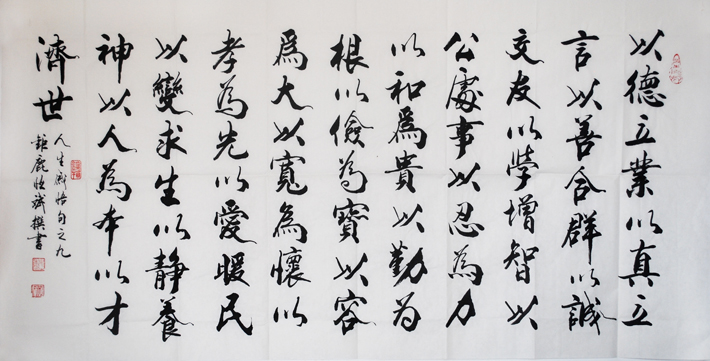 以德立業以真立
言以善合群以誠
交友以学增智以
公處事以忍為力
以和為貴以勤为
根以儉为寶以容
為大以寬為懷以
孝為先以愛暖民
以變求生以靜養
神以人為本以才
濟世
人生感悟句之九
鉅鹿 撰書